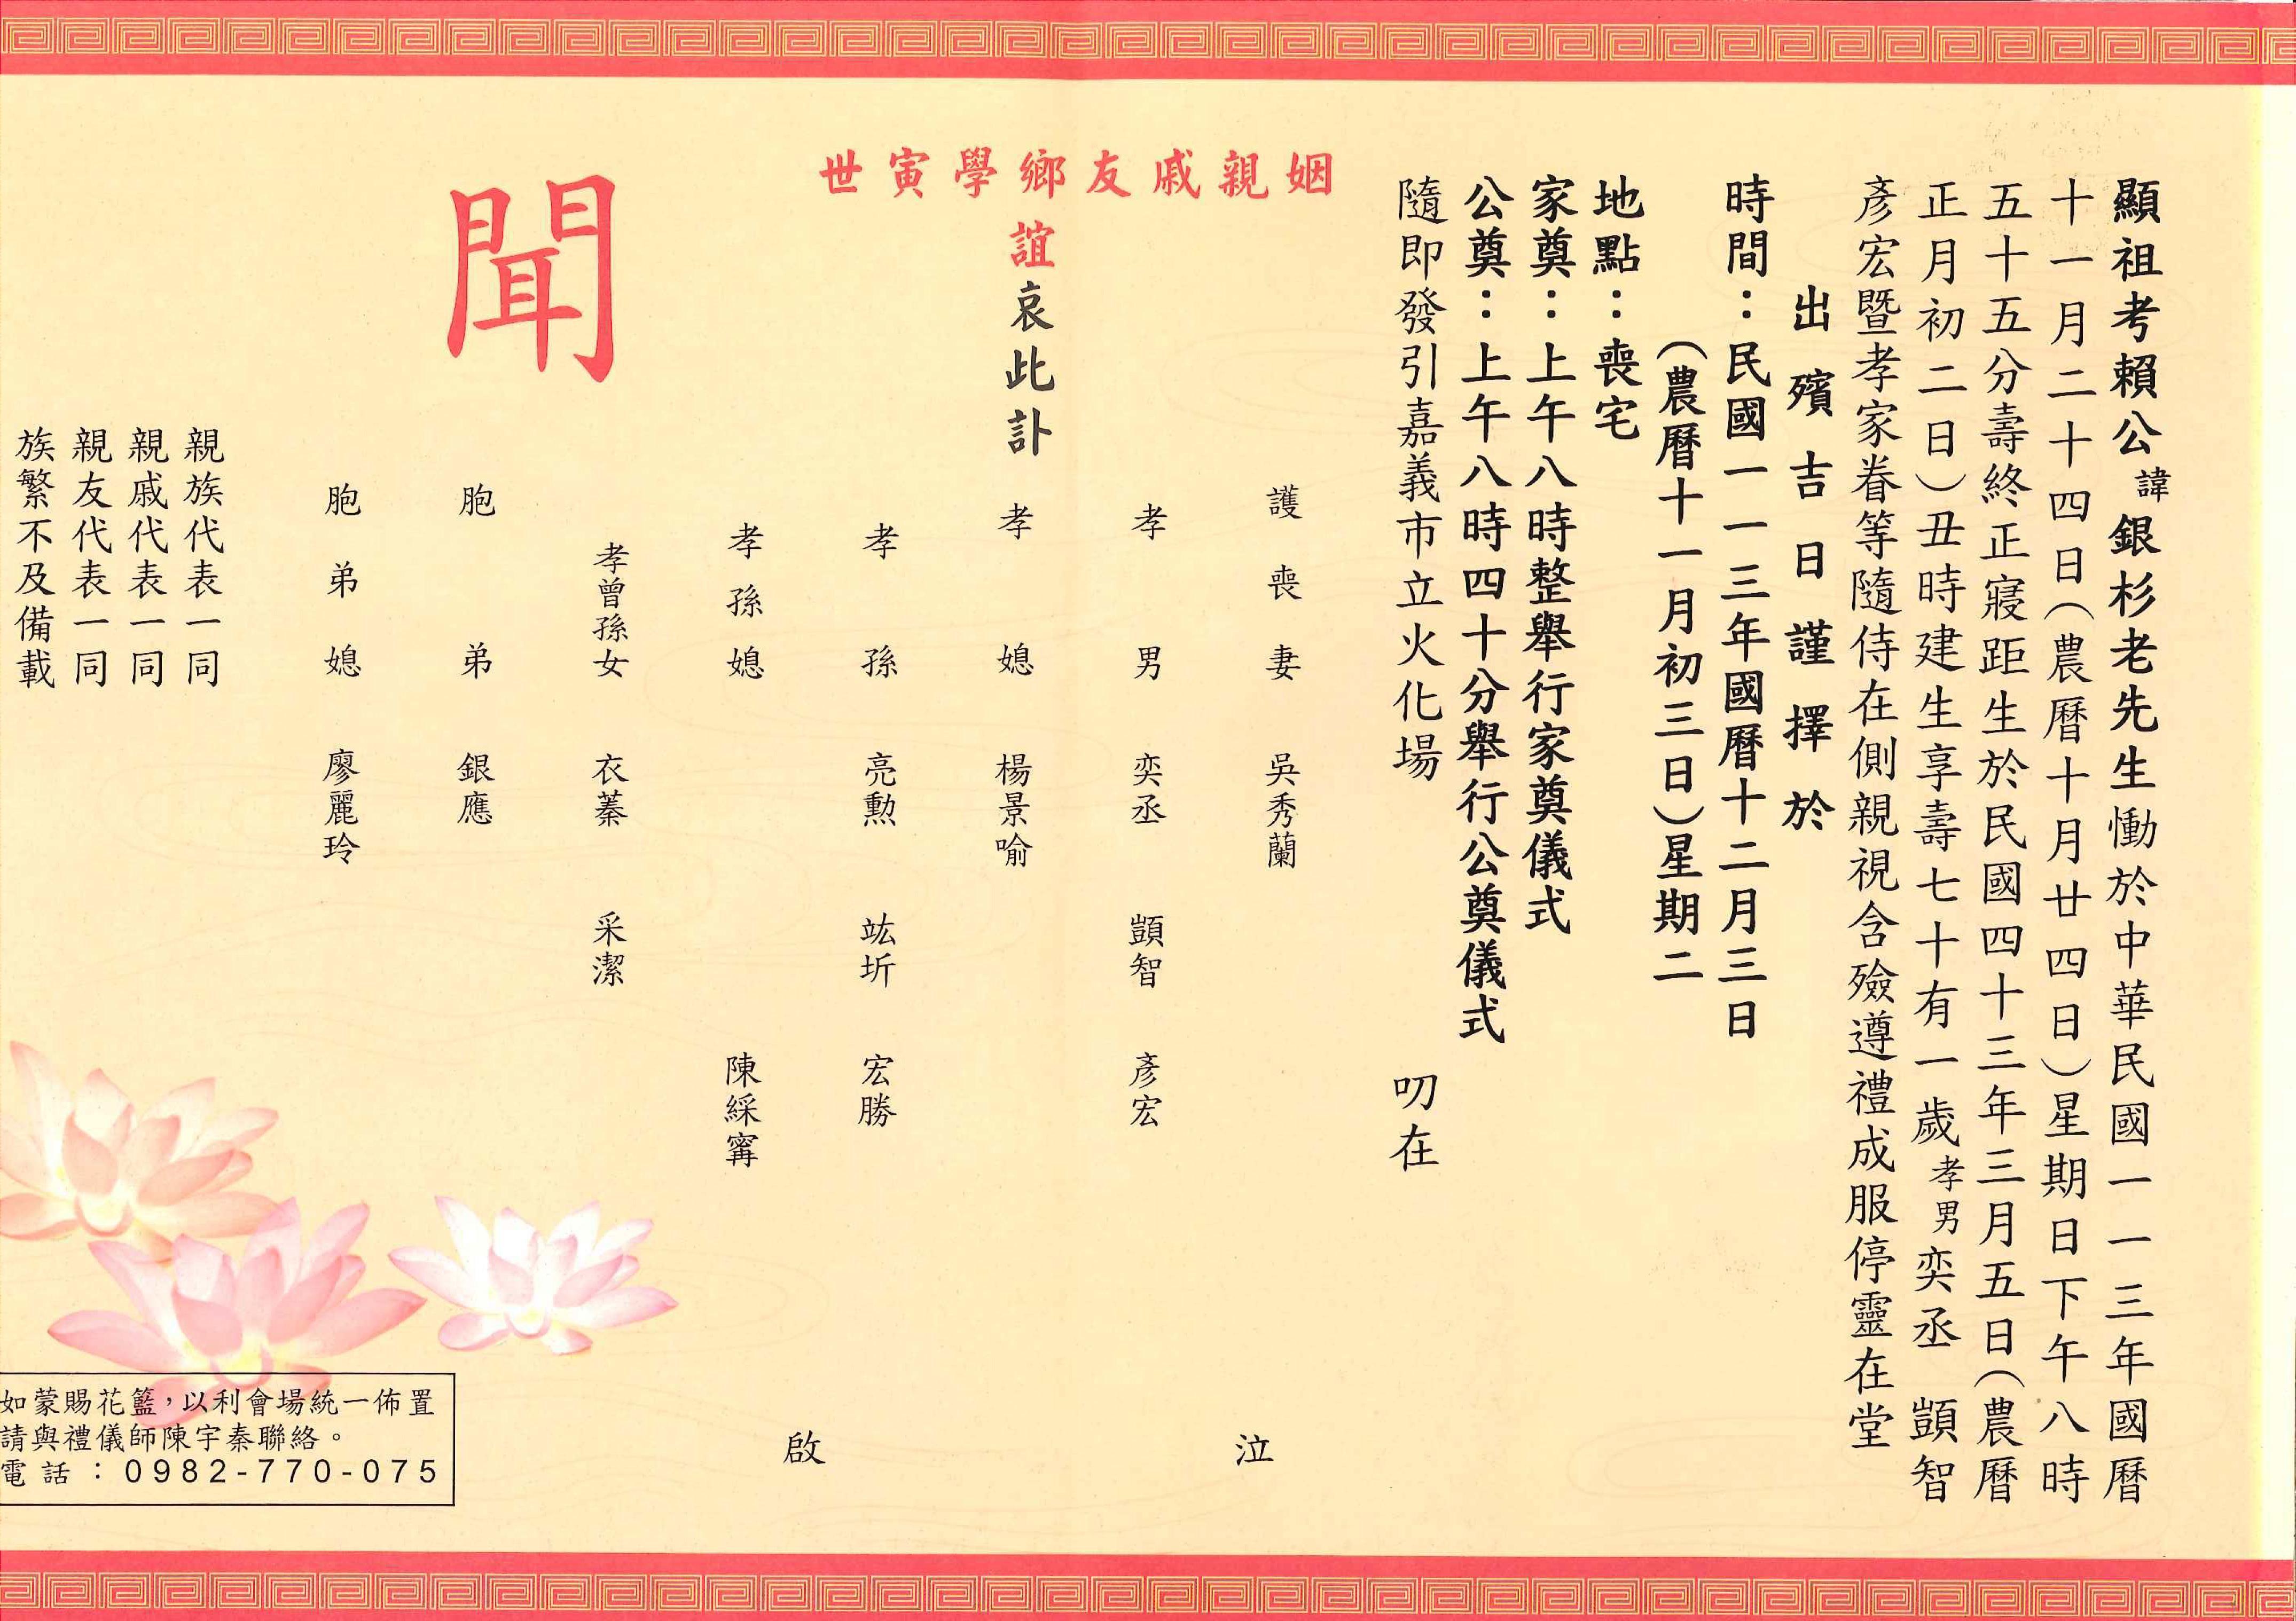 顯祖考賴公諱銀杉老先生慟於中華民國一一三年國曆
十一月二十四日（農曆十月廿四日）星期日下午八時
五十五分壽終正寢距生於民國四十三年三月五日（農曆
正月初二日）丑時建生享壽七十有一歲孝男奕丞 顗智
彥宏暨孝家眷等隨侍在側親視含殮遵禮成服停靈在堂
出殯吉日謹擇於
時間：民國一一三年國曆十二月三日
（農曆十一月初三日）星期二
地點：喪宅
家奠：上午八時整舉行家奠儀式
公奠：上午八時四十分舉行公奠儀式
隨即發引嘉義市立火化場 叨在
姻親戚友鄉學寅世
誼哀此訃
聞
護喪妻 吳秀蘭
孝男 奕丞 顗智 彥宏
孝媳 楊景喻
孝孫 亮勲 竑圻 宏勝
孝孫媳 陳綵寗
孝曾孫女 衣蓁 采潔
胞弟 銀應
胞弟媳 廖麗玲
泣
啟
親族代表一同
親戚代表一同
親友代表一同
族繁不及備載
如蒙賜花籃，以利會場統一佈置
請與禮儀師陳宇秦聯絡。
電話：0982-770-075